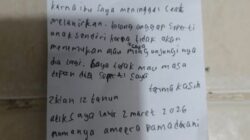 karna ibu saya meninggal cek
melahirkan. tolong anggap seperti
anak sendiri karna tidak akan
menemukan atau saya mengunjungi nya
dia lagi. saya tidak mau masa
depan dia seperti saya
terima kasih
zklan 12 tahun
adik saya lahir 2 maret 2026
namanya ameera ramadhani